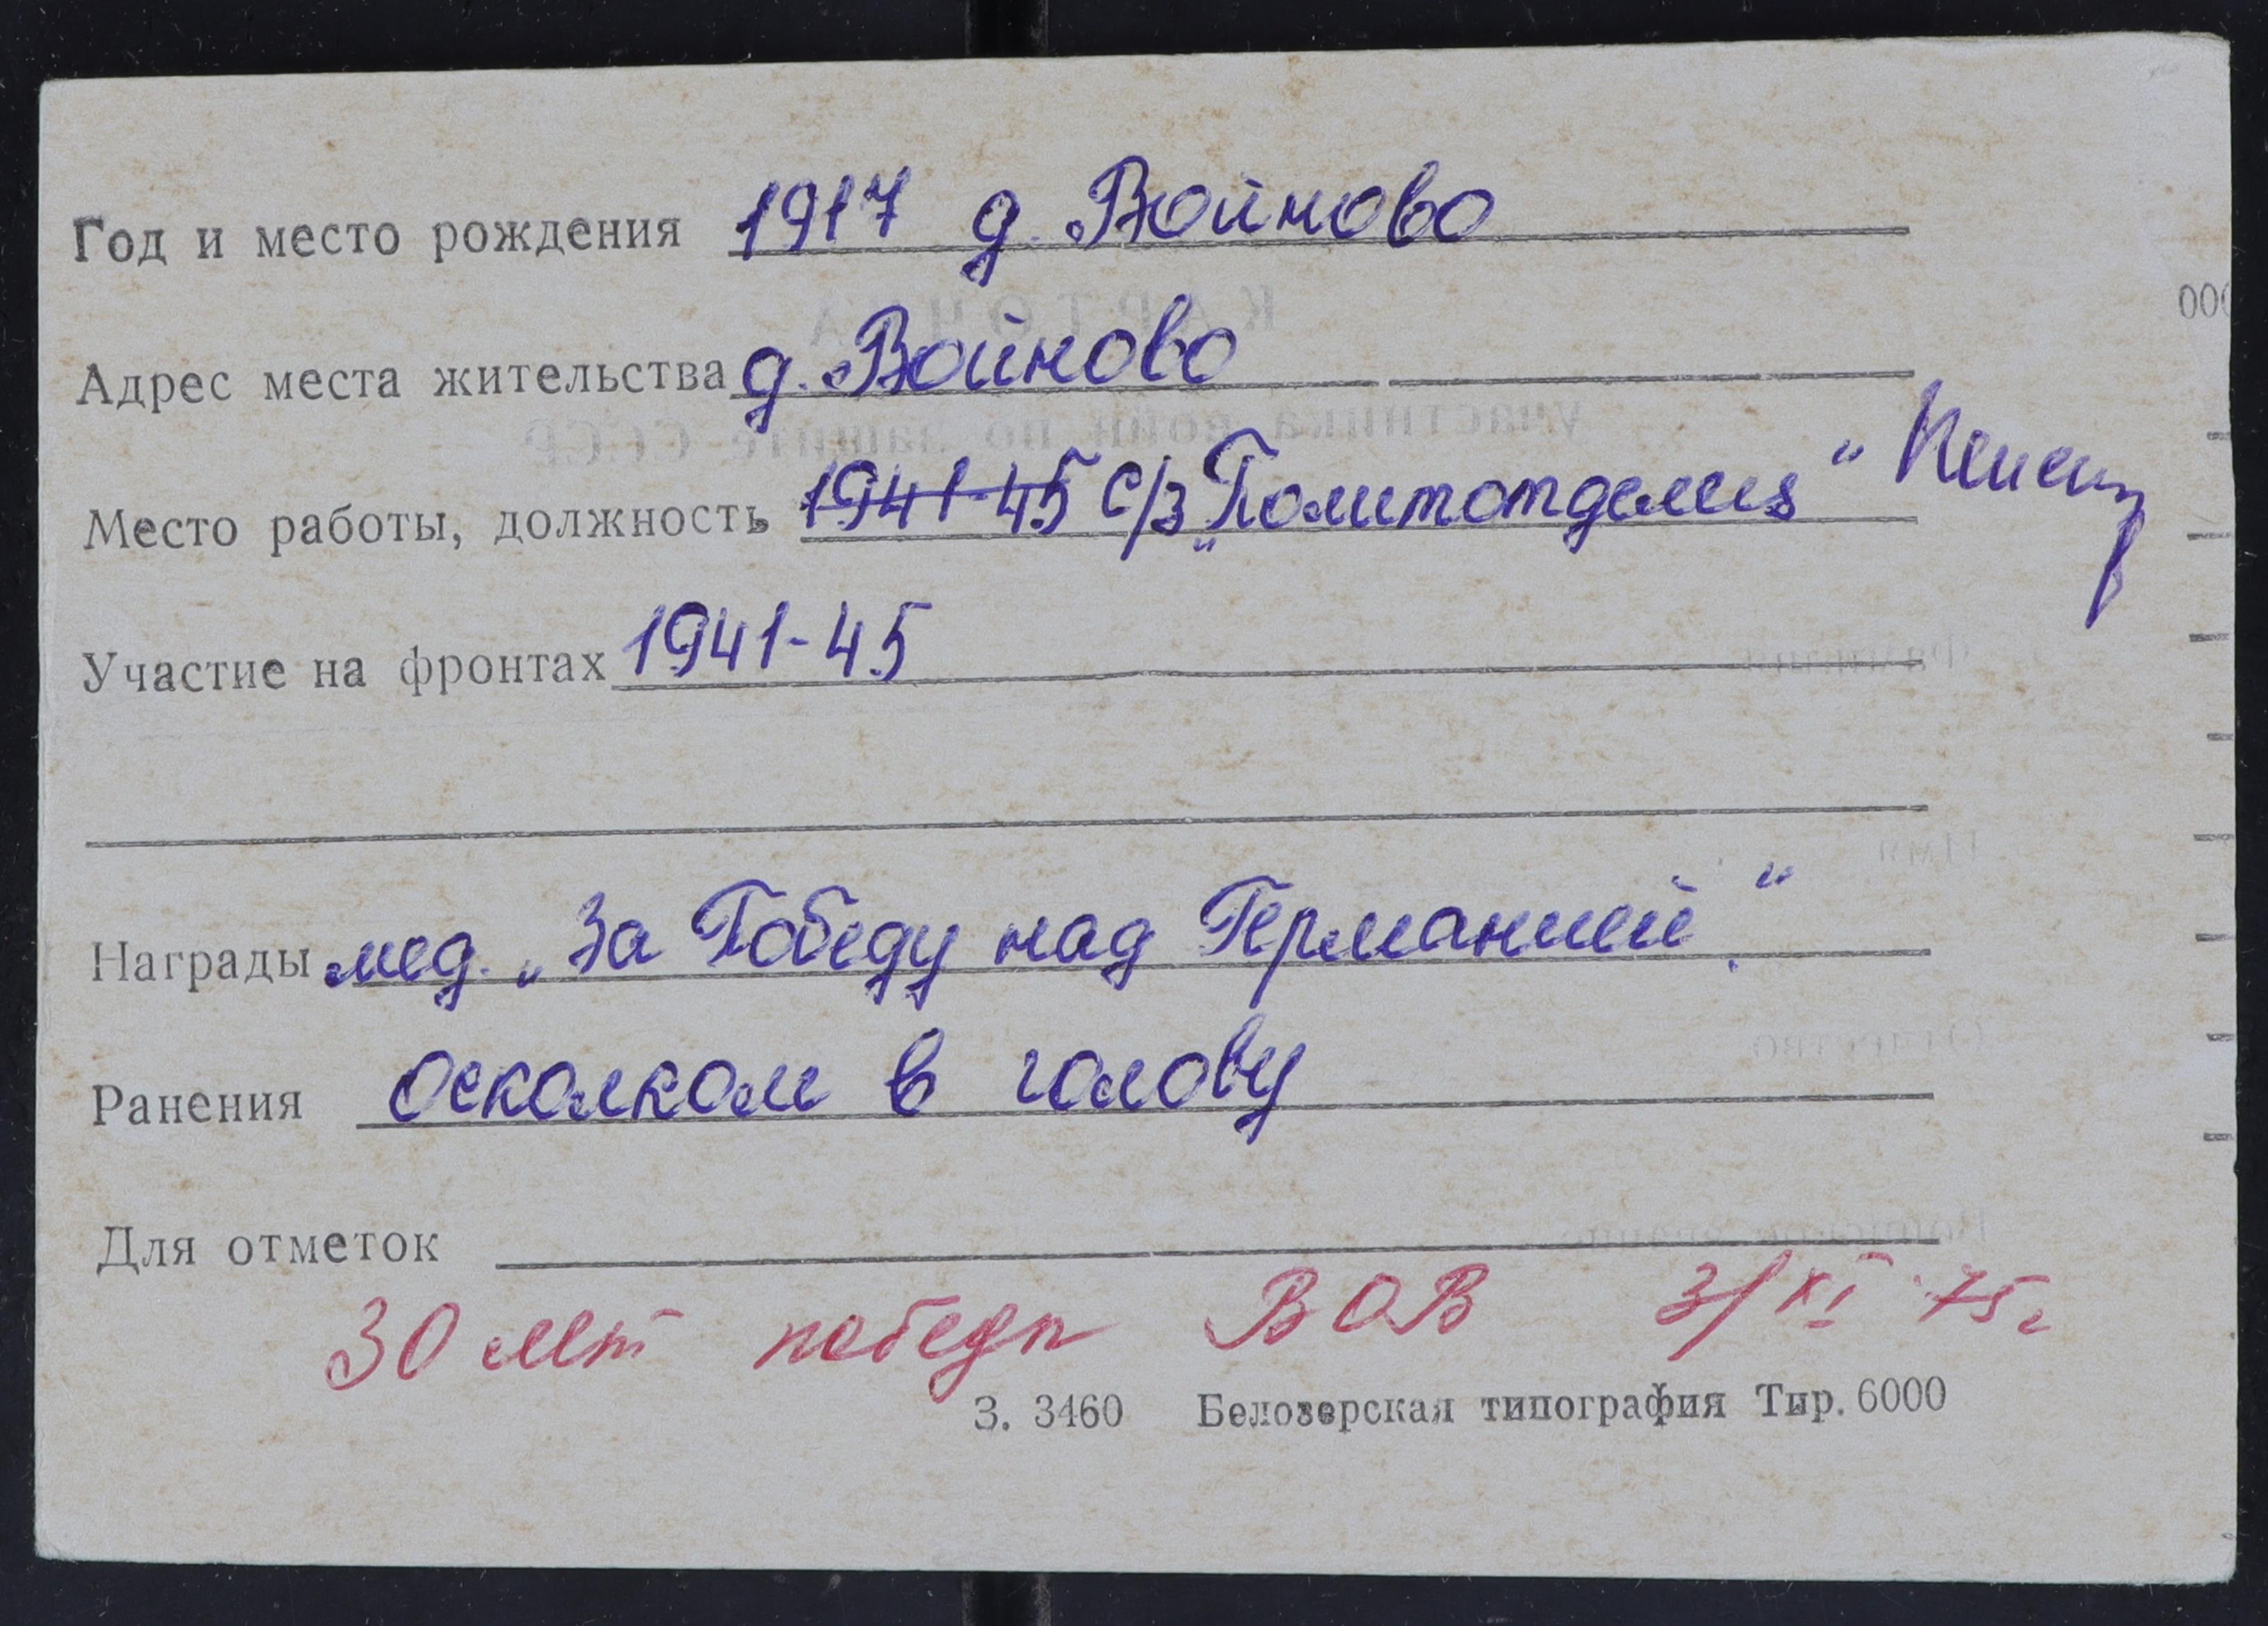 Год и место рождения 1917 д. Войново
Адрес места жительства д. Войново
Место работы, должность 1941-45 с/з „Политотделец“
Участие на фронтах 1941-45
Награды мед. „За Победу над Германией“.
Ранения осколком в голову
Для отметок
30 лет победы ВОВ 3/XI 75г
З. 3460 Белозерская типография Тир. 6000